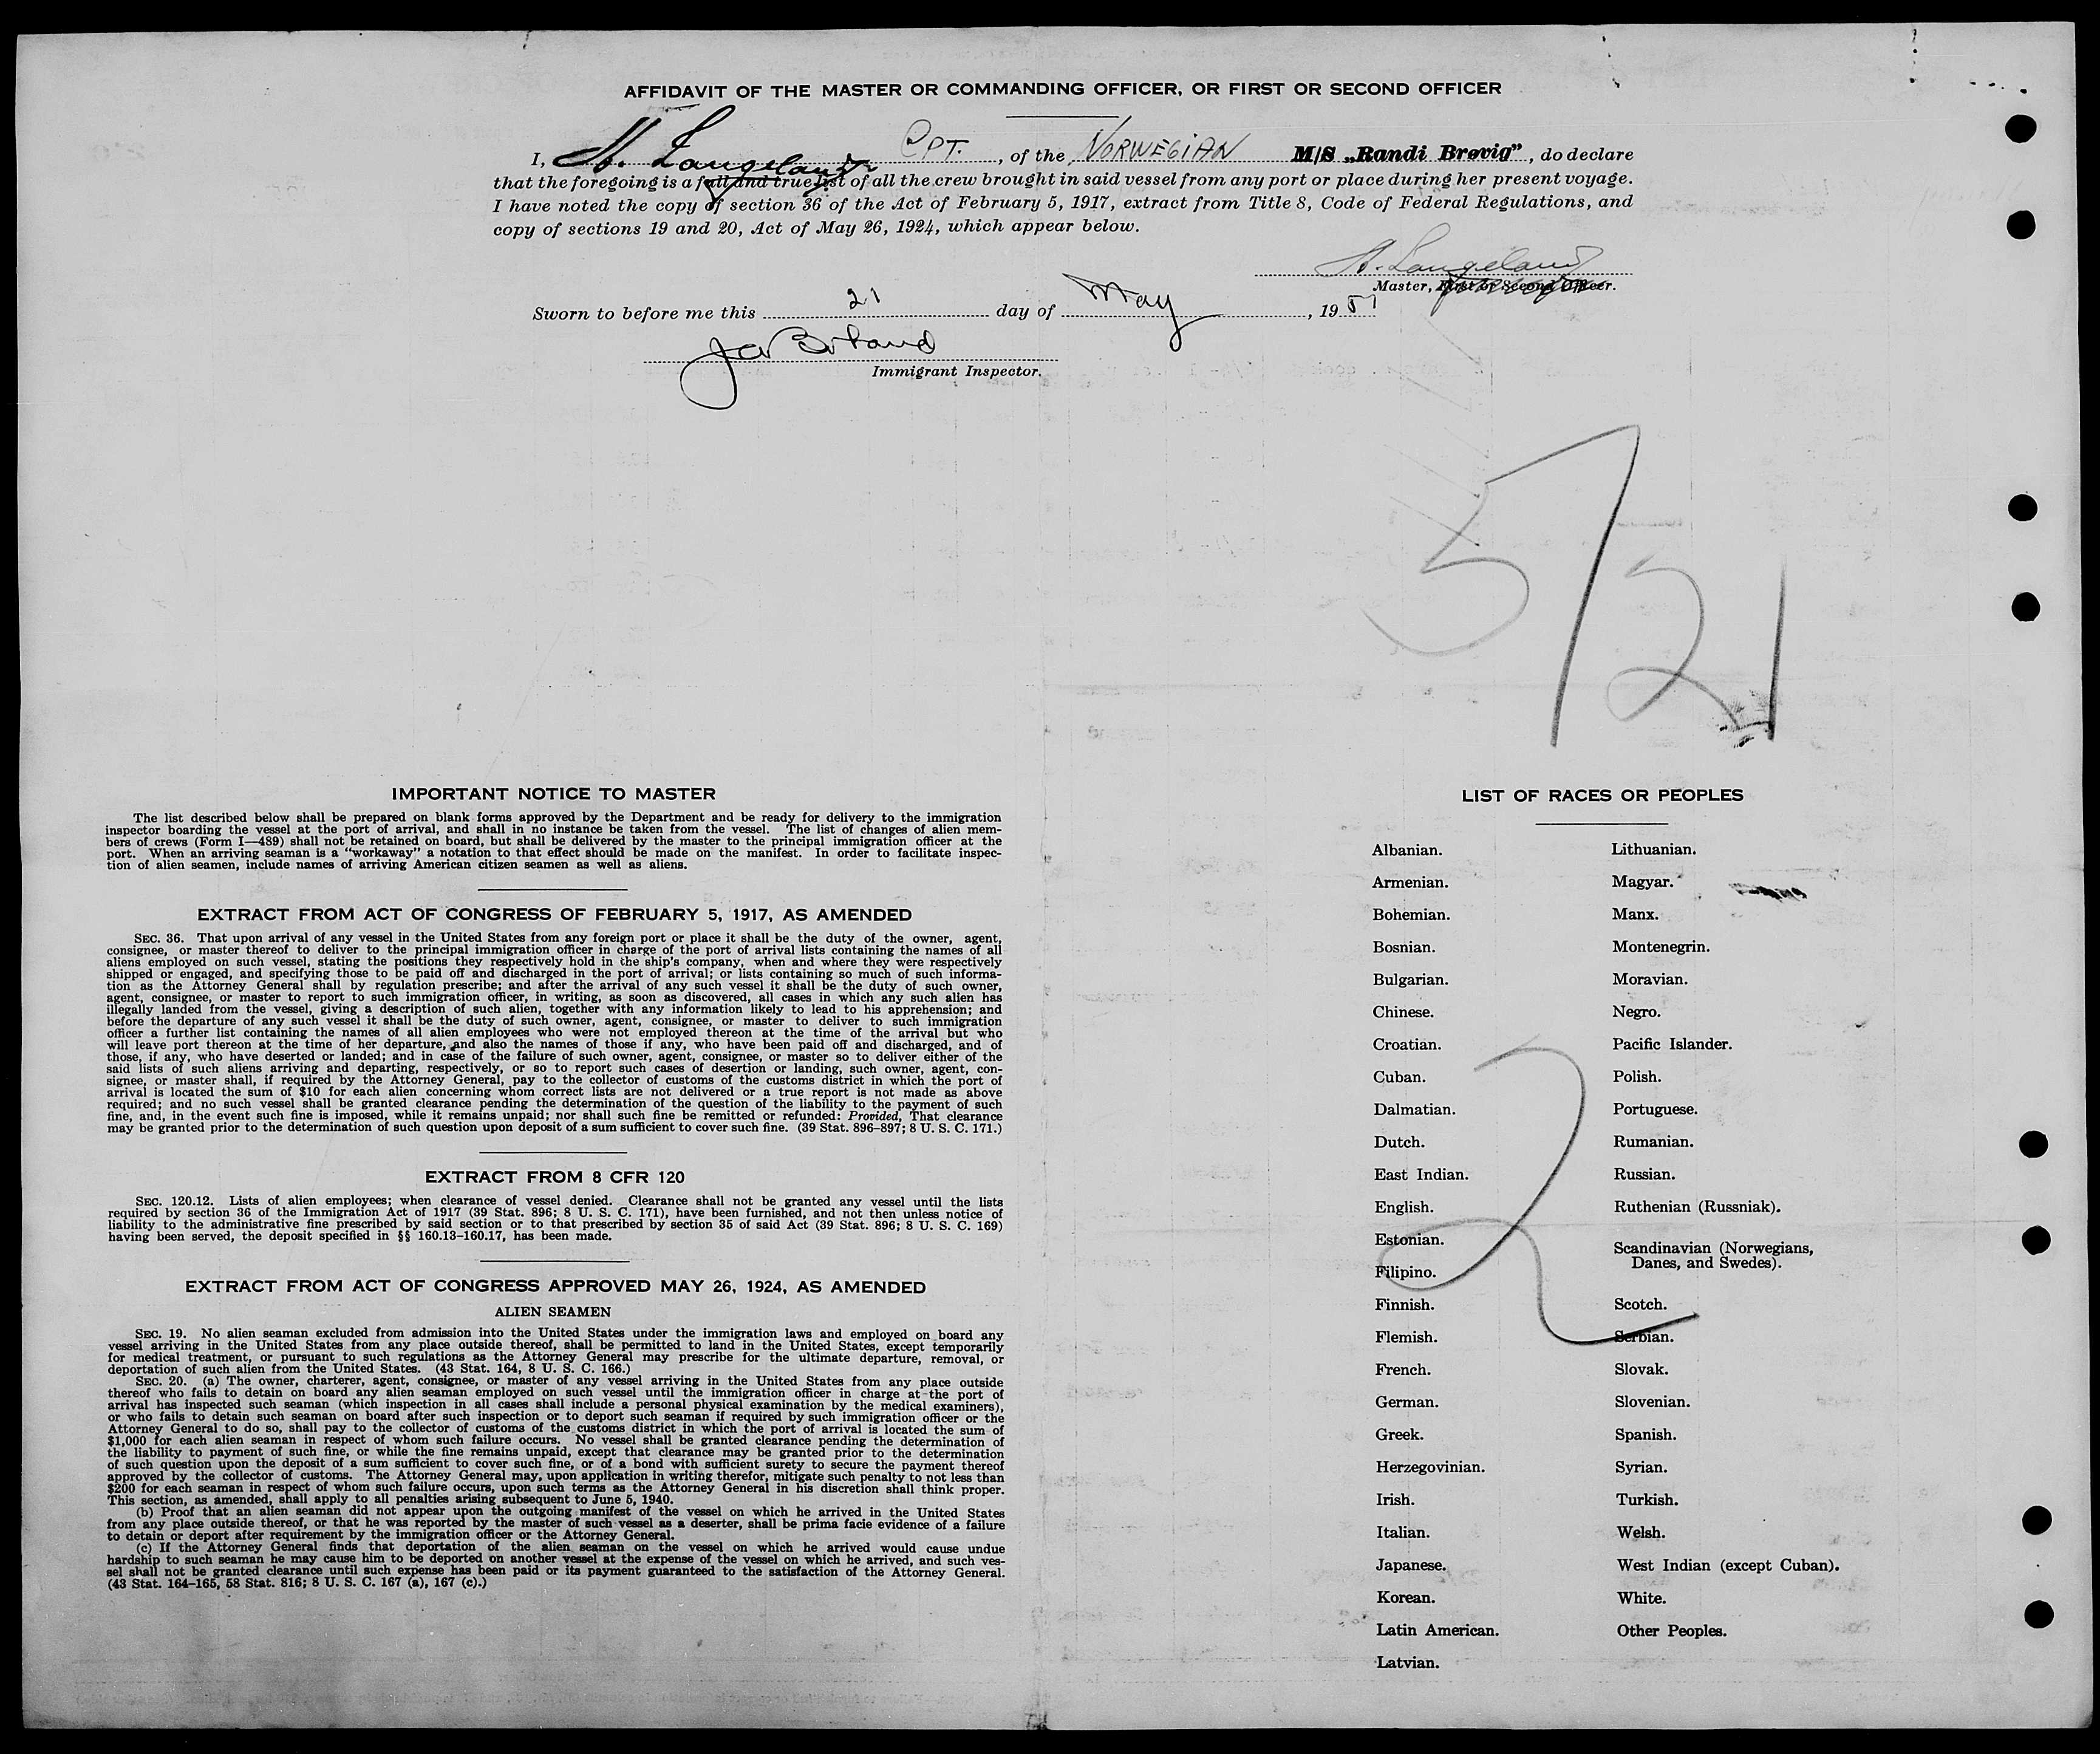 AFFIDAVIT OF THE MASTER OR COMMANDING OFFICER, OR FIRST OR SECOND OFFICER
I, H. Langeland CPT. , of the NORWEGIAN M/S „Randi Brøvig” , do declare
that the foregoing is a full and true list of all the crew brought in said vessel from any port or place during her present voyage.
I have noted the copy of section 36 of the Act of February 5, 1917, extract from Title 8, Code of Federal Regulations, and
copy of sections 19 and 20, Act of May 26, 1924, which appear below.
H. Langeland
Master, First or Second Officer.
Sworn to before me this 21 day of May , 1951
Immigrant Inspector.
5/21
IMPORTANT NOTICE TO MASTER
The list described below shall be prepared on blank forms approved by the Department and be ready for delivery to the immigration
inspector boarding the vessel at the port of arrival, and shall in no instance be taken from the vessel. The list of changes of alien mem-
bers of crews (Form I—489) shall not be retained on board, but shall be delivered by the master to the principal immigration officer at the
port. When an arriving seaman is a "workaway" a notation to that effect should be made on the manifest. In order to facilitate inspec-
tion of alien seamen, include names of arriving American citizen seamen as well as aliens.
EXTRACT FROM ACT OF CONGRESS OF FEBRUARY 5, 1917, AS AMENDED
SEC. 36. That upon arrival of any vessel in the United States from any foreign port or place it shall be the duty of the owner, agent,
consignee, or master thereof to deliver to the principal immigration officer in charge of the port of arrival lists containing the names of all
aliens employed on such vessel, stating the positions they respectively hold in the ship's company, when and where they were respectively
shipped or engaged, and specifying those to be paid off and discharged in the port of arrival; or lists containing so much of such informa-
tion as the Attorney General shall by regulation prescribe; and after the arrival of any such vessel it shall be the duty of such owner,
agent, consignee, or master to report to such immigration officer, in writing, as soon as discovered, all cases in which any such alien has
illegally landed from the vessel, giving a description of such alien, together with any information likely to lead to his apprehension; and
before the departure of any such vessel it shall be the duty of such owner, agent, consignee, or master to deliver to such immigration
officer a further list containing the names of all alien employees who were not employed thereon at the time of the arrival but who
will leave port thereon at the time of her departure, and also the names of those if any, who have been paid off and discharged, and of
those, if any, who have deserted or landed; and in case of the failure of such owner, agent, consignee, or master so to deliver either of the
said lists of such aliens arriving and departing, respectively, or so to report such cases of desertion or landing, such owner, agent, con-
signee, or master shall, if required by the Attorney General, pay to the collector of customs of the customs district in which the port of
arrival is located the sum of $10 for each alien concerning whom correct lists are not delivered or a true report is not made as above
required; and no such vessel shall be granted clearance pending the determination of the question of the liability to the payment of such
fine, and, in the event such fine is imposed, while it remains unpaid; nor shall such fine be remitted or refunded: Provided, That clearance
may be granted prior to the determination of such question upon deposit of a sum sufficient to cover such fine. (39 Stat. 896–897; 8 U. S. C. 171.)
EXTRACT FROM 8 CFR 120
SEC. 120.12. Lists of alien employees; when clearance of vessel denied. Clearance shall not be granted any vessel until the lists
required by section 36 of the Immigration Act of 1917 (39 Stat. 896; 8 U. S. C. 171), have been furnished, and not then unless notice of
liability to the administrative fine prescribed by said section or to that prescribed by section 35 of said Act (39 Stat. 896; 8 U. S. C. 169)
having been served, the deposit specified in §§ 160.13–160.17, has been made.
EXTRACT FROM ACT OF CONGRESS APPROVED MAY 26, 1924, AS AMENDED
ALIEN SEAMEN
SEC. 19. No alien seaman excluded from admission into the United States under the immigration laws and employed on board any
vessel arriving in the United States from any place outside thereof, shall be permitted to land in the United States, except temporarily
for medical treatment, or pursuant to such regulations as the Attorney General may prescribe for the ultimate departure, removal, or
deportation of such alien from the United States. (43 Stat. 164, 8 U. S. C. 166.)
SEC. 20. (a) The owner, charterer, agent, consignee, or master of any vessel arriving in the United States from any place outside
thereof who fails to detain on board any alien seaman employed on such vessel until the immigration officer in charge at the port of
arrival has inspected such seaman (which inspection in all cases shall include a personal physical examination by the medical examiners),
or who fails to detain such seaman on board after such inspection or to deport such seaman if required by such immigration officer or the
Attorney General to do so, shall pay to the collector of customs of the customs district in which the port of arrival is located the sum of
$1,000 for each alien seaman in respect of whom such failure occurs. No vessel shall be granted clearance pending the determination of
the liability to payment of such fine, or while the fine remains unpaid, except that clearance may be granted prior to the determination
of such question upon the deposit of a sum sufficient to cover such fine, or of a bond with sufficient surety to secure the payment thereof
approved by the collector of customs. The Attorney General may, upon application in writing therefor, mitigate such penalty to not less than
$200 for each seaman in respect of whom such failure occurs, upon such terms as the Attorney General in his discretion shall think proper.
This section, as amended, shall apply to all penalties arising subsequent to June 5, 1940.
(b) Proof that an alien seaman did not appear upon the outgoing manifest of the vessel on which he arrived in the United States
from any place outside thereof, or that he was reported by the master of such vessel as a deserter, shall be prima facie evidence of a failure
to detain or deport after requirement by the immigration officer or the Attorney General.
(c) If the Attorney General finds that deportation of the alien seaman on the vessel on which he arrived would cause undue
hardship to such seaman he may cause him to be deported on another vessel at the expense of the vessel on which he arrived, and such ves-
sel shall not be granted clearance until such expense has been paid or its payment guaranteed to the satisfaction of the Attorney General.
(43 Stat. 164–165, 58 Stat. 816; 8 U. S. C. 167 (a), 167 (c).)
LIST OF RACES OR PEOPLES
Albanian.
Armenian.
Bohemian.
Bosnian.
Bulgarian.
Chinese.
Croatian.
Cuban.
Dalmatian.
Dutch.
East Indian.
English.
Estonian.
Filipino.
Finnish.
Flemish.
French.
German.
Greek.
Herzegovinian.
Irish.
Italian.
Japanese.
Korean.
Latin American.
Latvian.
Lithuanian.
Magyar.
Manx.
Montenegrin.
Moravian.
Negro.
Pacific Islander.
Polish.
Portuguese.
Rumanian.
Russian.
Ruthenian (Russniak).
Scandinavian (Norwegians,
Danes, and Swedes).
Scotch.
Serbian.
Slovak.
Slovenian.
Spanish.
Syrian.
Turkish.
Welsh.
West Indian (except Cuban).
White.
Other Peoples.
2